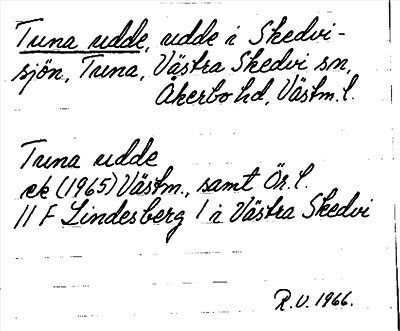 Tuna udde, udde i Skedvi-
sjön, Tuna, Västra Skedvi sn,
Åkerbo hd, Västm. l.
Tuna udde
ek (1965) Västm., samt Ör. l.
11 F Lindesberg / i Västra Skedvi
R.V. 1966.